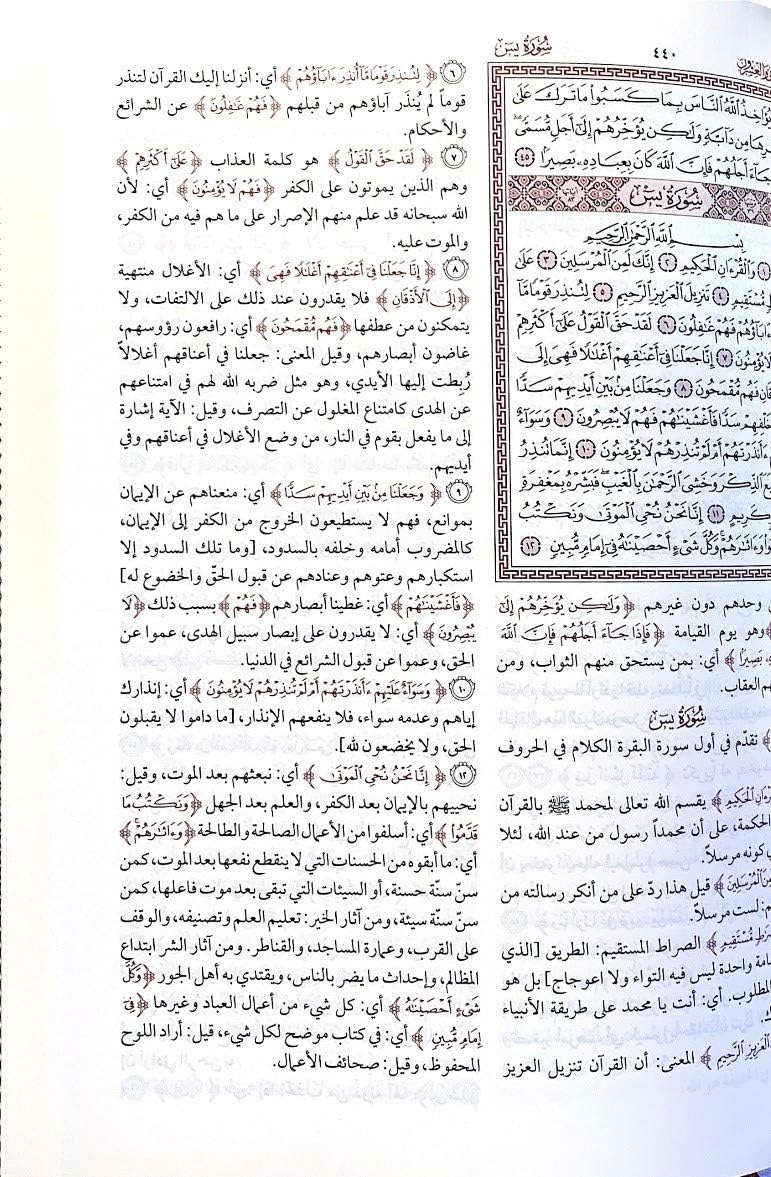 سُورَةُ يسٓ
٤٤٠
ؤَاخِذُ ٱللَّهُ ٱلنَّاسَ بِمَا كَسَبُوا۟ مَا تَرَكَ عَلَىٰ
مِن دَآبَّةٍ وَلَٰكِن يُؤَخِّرُهُمْ إِلَىٰٓ أَجَلٍ مُّسَمًّى ۖ
جَآءَ أَجَلُهُمْ فَإِنَّ ٱللَّهَ كَانَ بِعِبَادِهِۦ بَصِيرًۢا ٤٥
سُورَةُ يسٓ
بِسْمِ ٱللَّهِ ٱلرَّحْمَٰنِ ٱلرَّحِيمِ
١ وَٱلْقُرْءَانِ ٱلْحَكِيمِ ٢ إِنَّكَ لَمِنَ ٱلْمُرْسَلِينَ ٣ عَلَىٰ
مُّسْتَقِيمٍ ٤ تَنزِيلَ ٱلْعَزِيزِ ٱلرَّحِيمِ ٥ لِتُنذِرَ قَوْمًا مَّآ
ءَابَآؤُهُمْ فَهُمْ غَٰفِلُونَ ٦ لَقَدْ حَقَّ ٱلْقَوْلُ عَلَىٰٓ أَكْثَرِهِمْ
لَا يُؤْمِنُونَ ٧ إِنَّا جَعَلْنَا فِىٓ أَعْنَٰقِهِمْ أَغْلَٰلًا فَهِىَ إِلَى
فَهُم مُّقْمَحُونَ ٨ وَجَعَلْنَا مِنۢ بَيْنِ أَيْدِيهِمْ سَدًّا
خَلْفِهِمْ سَدًّا فَأَغْشَيْنَٰهُمْ فَهُمْ لَا يُبْصِرُونَ ٩ وَسَوَآءٌ
ءَأَنذَرْتَهُمْ أَمْ لَمْ تُنذِرْهُمْ لَا يُؤْمِنُونَ ١٠ إِنَّمَا تُنذِرُ
ٱلذِّكْرَ وَخَشِىَ ٱلرَّحْمَٰنَ بِٱلْغَيْبِ ۖ فَبَشِّرْهُ بِمَغْفِرَةٍ
كَرِيمٍ ١١ إِنَّا نَحْنُ نُحْىِ ٱلْمَوْتَىٰ وَنَكْتُبُ
وَءَاثَٰرَهُمْ ۚ وَكُلَّ شَىْءٍ أَحْصَيْنَٰهُ فِىٓ إِمَامٍ مُّبِينٍ ١٢
وحدهم دون غيرهم ﴿وَلَٰكِن يُؤَخِّرُهُمْ إِلَىٰٓ
وهو يوم القيامة ﴿فَإِذَا جَآءَ أَجَلُهُمْ فَإِنَّ ٱللَّهَ
بَصِيرًا﴾ أي: بمن يستحق منهم الثواب، ومن
العقاب.
سُورَةُ يسٓ
﴾ تقدّم في أول سورة البقرة الكلام في الحروف
ٱلْحَكِيمِ﴾ يقسم الله تعالى لمحمد ﷺ بالقرآن
الحكمة، على أن محمداً رسول من عند الله، لئلا
كونه مرسلاً.
ٱلْمُرْسَلِينَ﴾ قيل هذا ردّ على من أنكر رسالته من
لست مرسلاً.
مُّسْتَقِيمٍ﴾ الصراط المستقيم: الطريق [الذي
واحدة ليس فيه التواء ولا اعوجاج] بل هو
المطلوب. أي: أنت يا محمد على طريقة الأنبياء
ٱلْعَزِيزِ ٱلرَّحِيمِ﴾ المعنى: أن القرآن تنزيل العزيز
٦ ﴿لِتُنذِرَ قَوْمًا مَّآ أُنذِرَ ءَابَآؤُهُمْ﴾ أي: أنزلنا إليك القرآن لتنذر
قوماً لم يُنذَر آباؤهم من قبلهم ﴿فَهُمْ غَٰفِلُونَ﴾ عن الشرائع
والأحكام.
٧ ﴿لَقَدْ حَقَّ ٱلْقَوْلُ﴾ هو كلمة العذاب ﴿عَلَىٰٓ أَكْثَرِهِمْ﴾
وهم الذين يموتون على الكفر ﴿فَهُمْ لَا يُؤْمِنُونَ﴾ أي: لأن
الله سبحانه قد علم منهم الإصرار على ما هم فيه من الكفر،
والموت عليه.
٨ ﴿إِنَّا جَعَلْنَا فِىٓ أَعْنَٰقِهِمْ أَغْلَٰلًا فَهِىَ﴾ أي: الأغلال منتهية
﴿إِلَى ٱلْأَذْقَانِ﴾ فلا يقدرون عند ذلك على الالتفات، ولا
يتمكنون من عطفها ﴿فَهُم مُّقْمَحُونَ﴾ أي: رافعون رؤوسهم،
غاضون أبصارهم، وقيل المعنى: جعلنا في أعناقهم أغلالاً
رُبِطت إليها الأيدي، وهو مثل ضربه الله لهم في امتناعهم
عن الهدى كامتناع المغلول عن التصرف، وقيل: الآية إشارة
إلى ما يفعل بقوم في النار، من وضع الأغلال في أعناقهم وفي
أيديهم.
٩ ﴿وَجَعَلْنَا مِنۢ بَيْنِ أَيْدِيهِمْ سَدًّا﴾ أي: منعناهم عن الإيمان
بموانع، فهم لا يستطيعون الخروج من الكفر إلى الإيمان،
كالمضروب أمامه وخلفه بالسدود، [وما تلك السدود إلا
استكبارهم وعتوهم وعنادهم عن قبول الحقّ والخضوع له]
﴿فَأَغْشَيْنَٰهُمْ﴾ أي: غطينا أبصارهم ﴿فَهُمْ﴾ بسبب ذلك ﴿لَا
يُبْصِرُونَ﴾ أي: لا يقدرون على إبصار سبيل الهدى، عموا عن
الحق، وعموا عن قبول الشرائع في الدنيا.
١٠ ﴿وَسَوَآءٌ عَلَيْهِمْ ءَأَنذَرْتَهُمْ أَمْ لَمْ تُنذِرْهُمْ لَا يُؤْمِنُونَ﴾ أي: إنذارك
إياهم وعدمه سواء، فلا ينفعهم الإنذار، [ما داموا لا يقبلون
الحق، ولا يخضعون لله].
١٢ ﴿إِنَّا نَحْنُ نُحْىِ ٱلْمَوْتَىٰ﴾ أي: نبعثهم بعد الموت، وقيل:
نحييهم بالإيمان بعد الكفر، والعلم بعد الجهل ﴿وَنَكْتُبُ مَا
قَدَّمُوا۟﴾ أي: أسلفوا من الأعمال الصالحة والطالحة ﴿وَءَاثَٰرَهُمْ ۚ﴾
أي: ما أبقوه من الحسنات التي لا ينقطع نفعها بعد الموت، كمن
سنّ سنّة حسنة، أو السيئات التي تبقى بعد موت فاعلها، كمن
سنّ سنة سيئة، ومن آثار الخير: تعليم العلم وتصنيفه، والوقف
على القرب، وعمارة المساجد، والقناطر. ومن آثار الشر ابتداع
المظالم، وإحداث ما يضر بالناس، ويقتدي به أهل الجور ﴿وَكُلَّ
شَىْءٍ أَحْصَيْنَٰهُ﴾ أي: كل شيء من أعمال العباد وغيرها ﴿فِىٓ
إِمَامٍ مُّبِينٍ﴾ أي: في كتاب موضح لكل شيء، قيل: أراد اللوح
المحفوظ، وقيل: صحائف الأعمال.